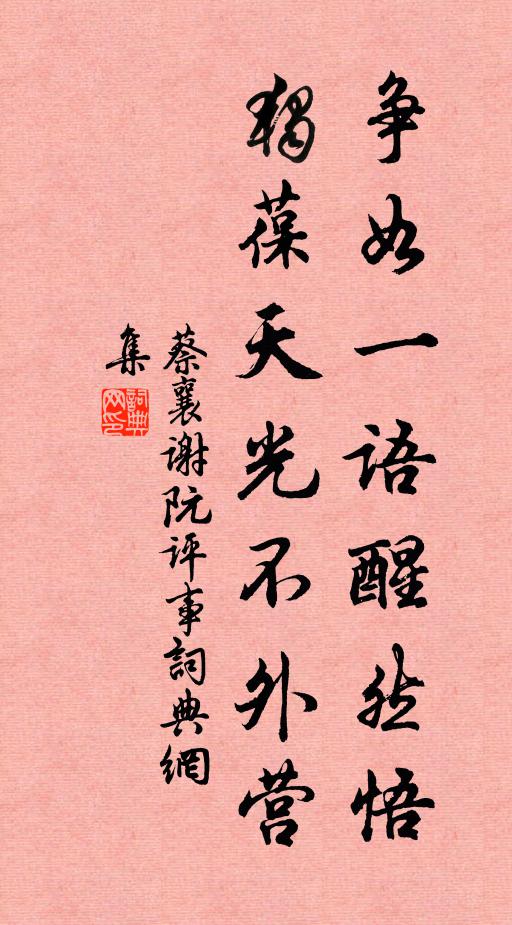 争如一语醒然悟
独葆天光不外营
蔡襄谢阮评事詞典網
集
詞典
网印